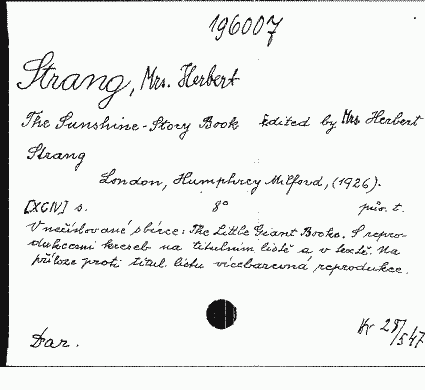 196007
Strang, Mrs. Herbert
The Sunshine-Story Book Edited by Mrs Herbert
Strang
London, Humphrey Milford, (1926).
[XCIV] s. 8° pův. t.
V nečíslované sbírce: The Little Giant Books. S repro-
dukcemi kreseb na titulním listě a v textě. Na
příloze proti titul. listu vícebarevná reprodukce.
Dar.
Kr 28/547